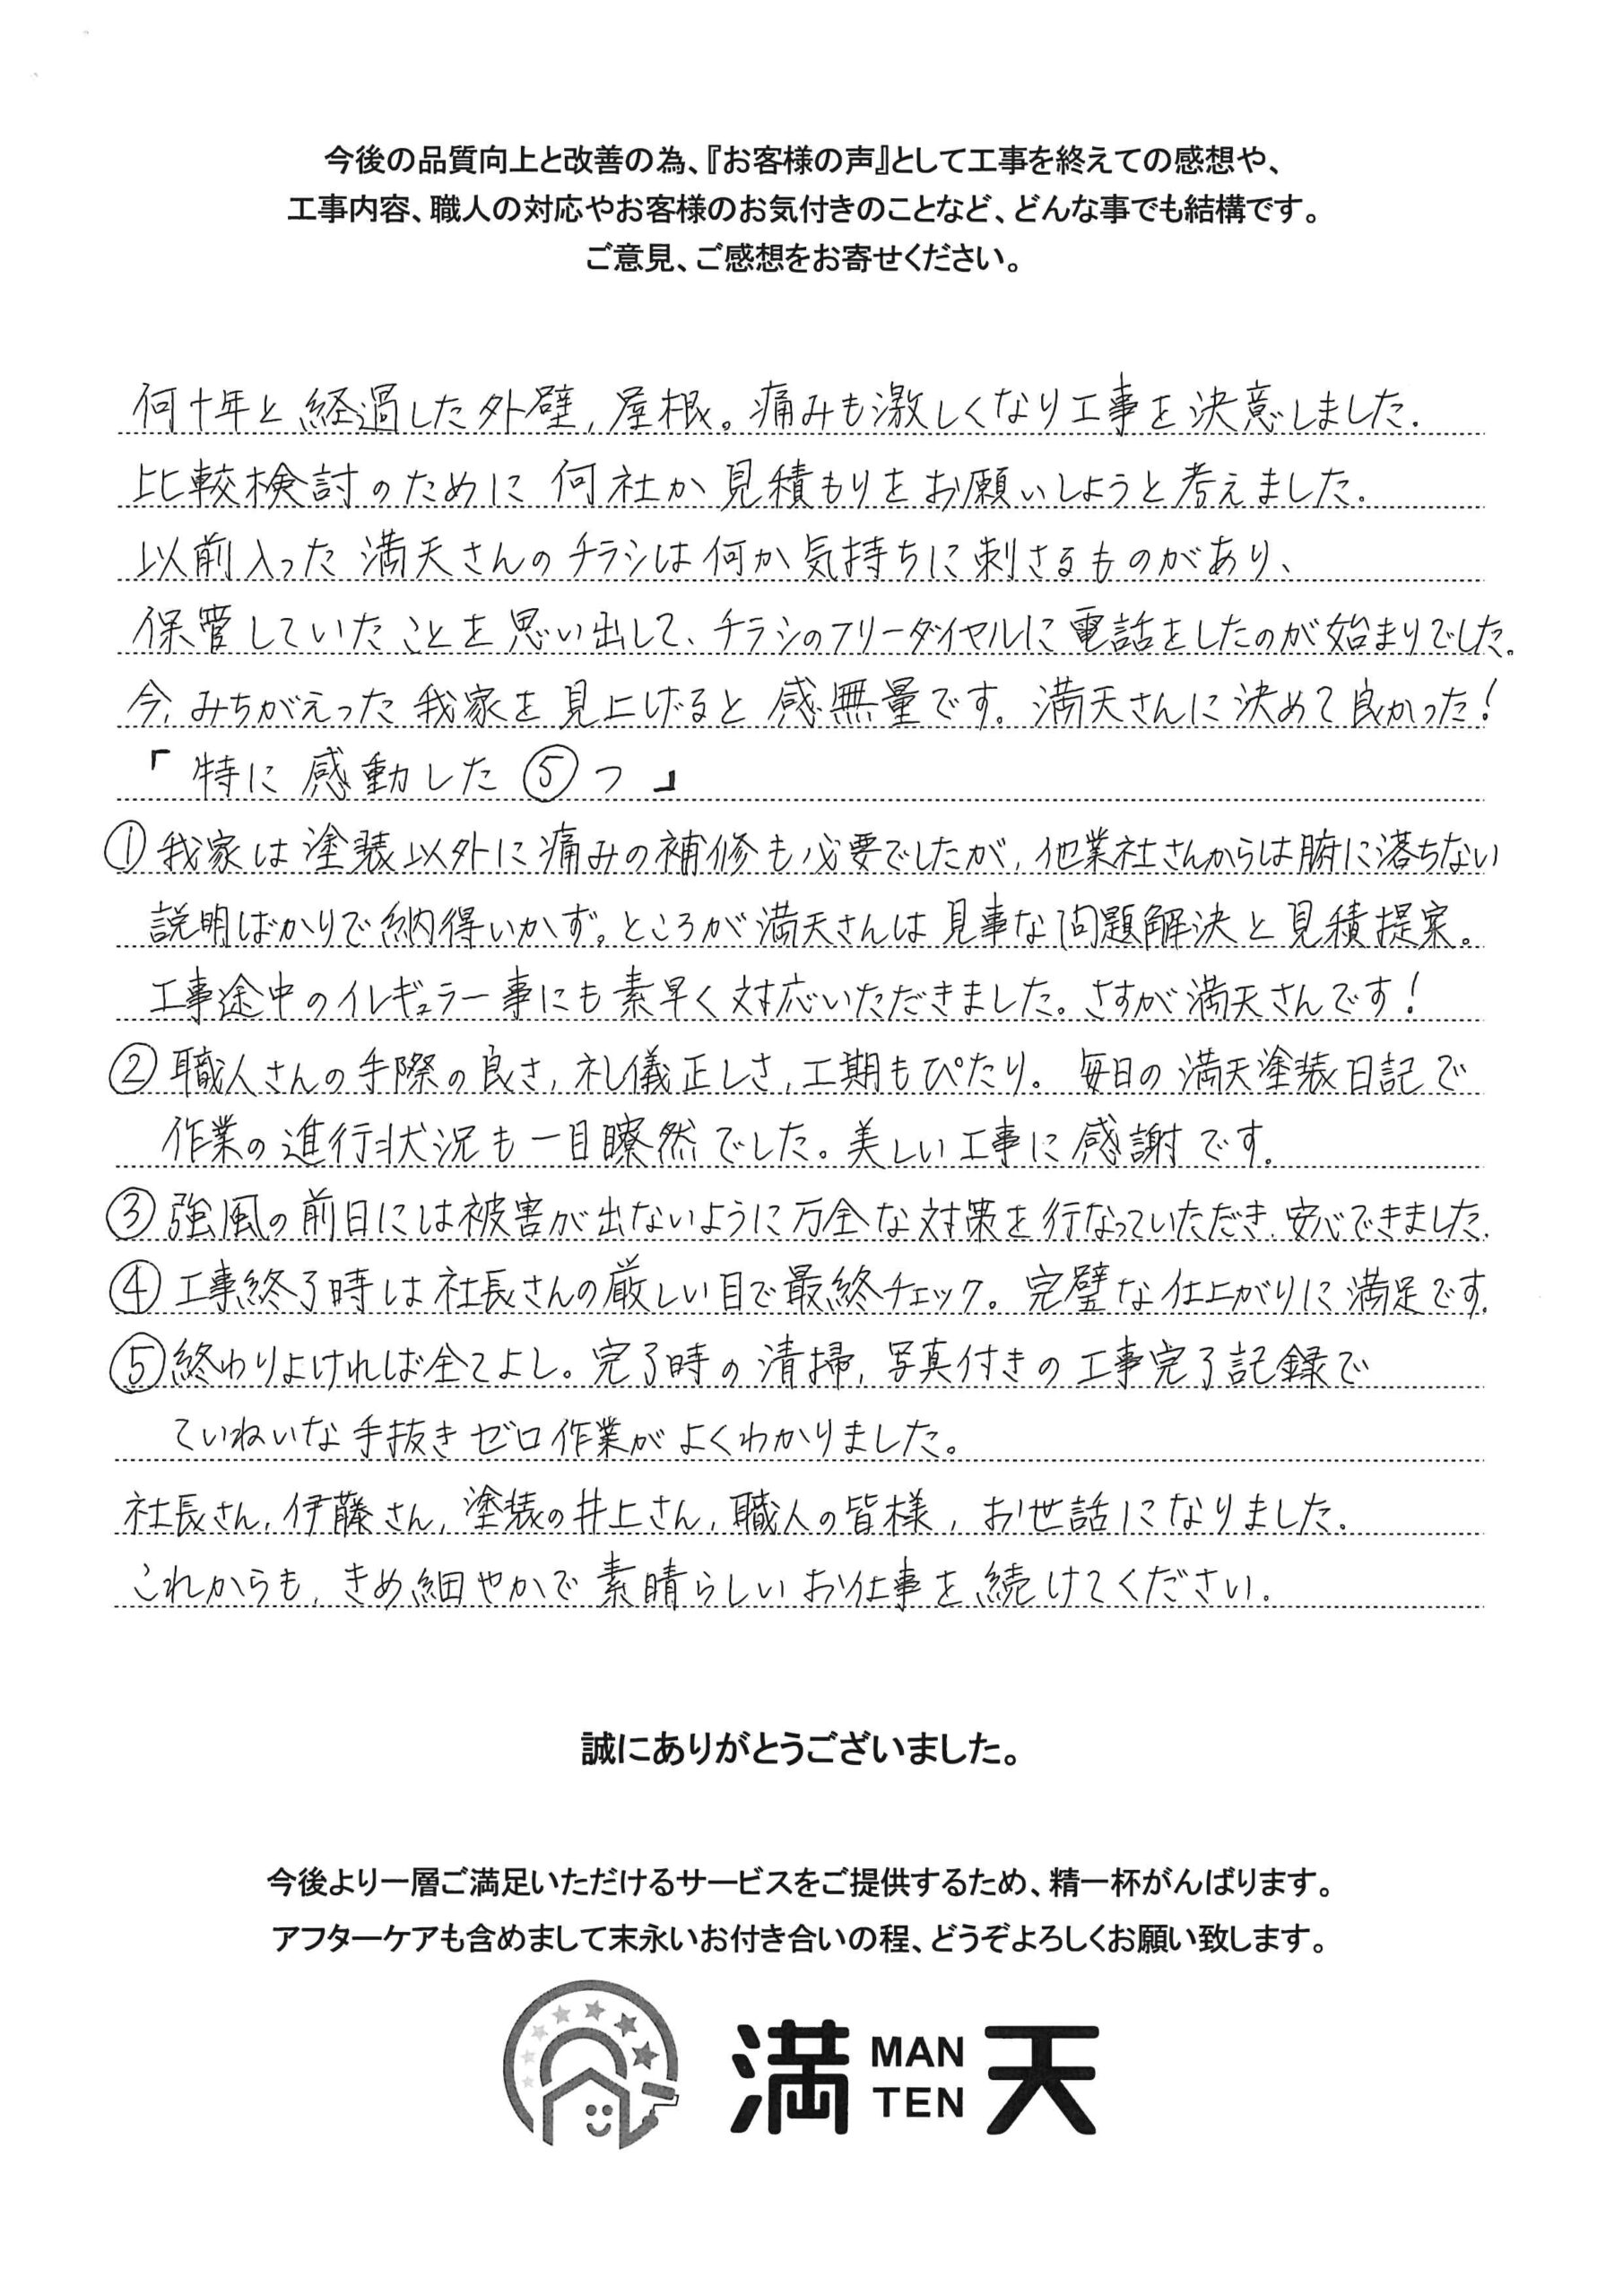 今後の品質向上と改善の為、『お客様の声』として工事を終えての感想や、
工事内容、職人の対応やお客様のお気付きのことなど、どんな事でも結構です。
ご意見、ご感想をお寄せください。
何十年と経過した外壁,屋根。痛みも激しくなり工事を決意しました.
比較検討のために何社か見積もりをお願いしようと考えました.
以前入った満天さんのチラシは何か気持ちに刺さるものがあり、
保管していたことを思い出して、チラシのフリーダイヤルに電話をしたのが始まりでした.
今,みちがえった我家を見上げると感無量です。満天さんに決めて良かった!
「特に感動した⑤つ」
①我家は塗装以外に痛みの補修も必要でしたが,他業社さんからは腑に落ちない
説明ばかりで納得いかず。ところが満天さんは見事な問題解決と見積提案。
工事途中のイレギュラー事にも素早く対応いただきました。さすが満天さんです!
②職人さんの手際の良さ,礼儀正しさ,工期もぴたり。毎日の満天塗装日記で
作業の進行状況も一目瞭然でした。美しい工事に感謝です.
③強風の前日には被害が出ないように万全な対策を行なっていただき、安心できました.
④工事終了時は社長さんの厳しい目で最終チェック。完璧な仕上がりに満足です.
⑤終わりよければ全てよし。完了時の清掃,写真付きの工事完了記録で
ていねいな手抜きゼロ作業がよくわかりました。
社長さん,伊藤さん,塗装の井上さん,職人の皆様,お世話になりました.
これからも,きめ細やかで素晴らしいお仕事を続けてください.
誠にありがとうございました。
今後より一層ご満足いただけるサービスをご提供するため、精一杯がんばります。
アフターケアも含めまして末永いお付き合いの程、どうぞよろしくお願い致します。
満 MAN TEN 天